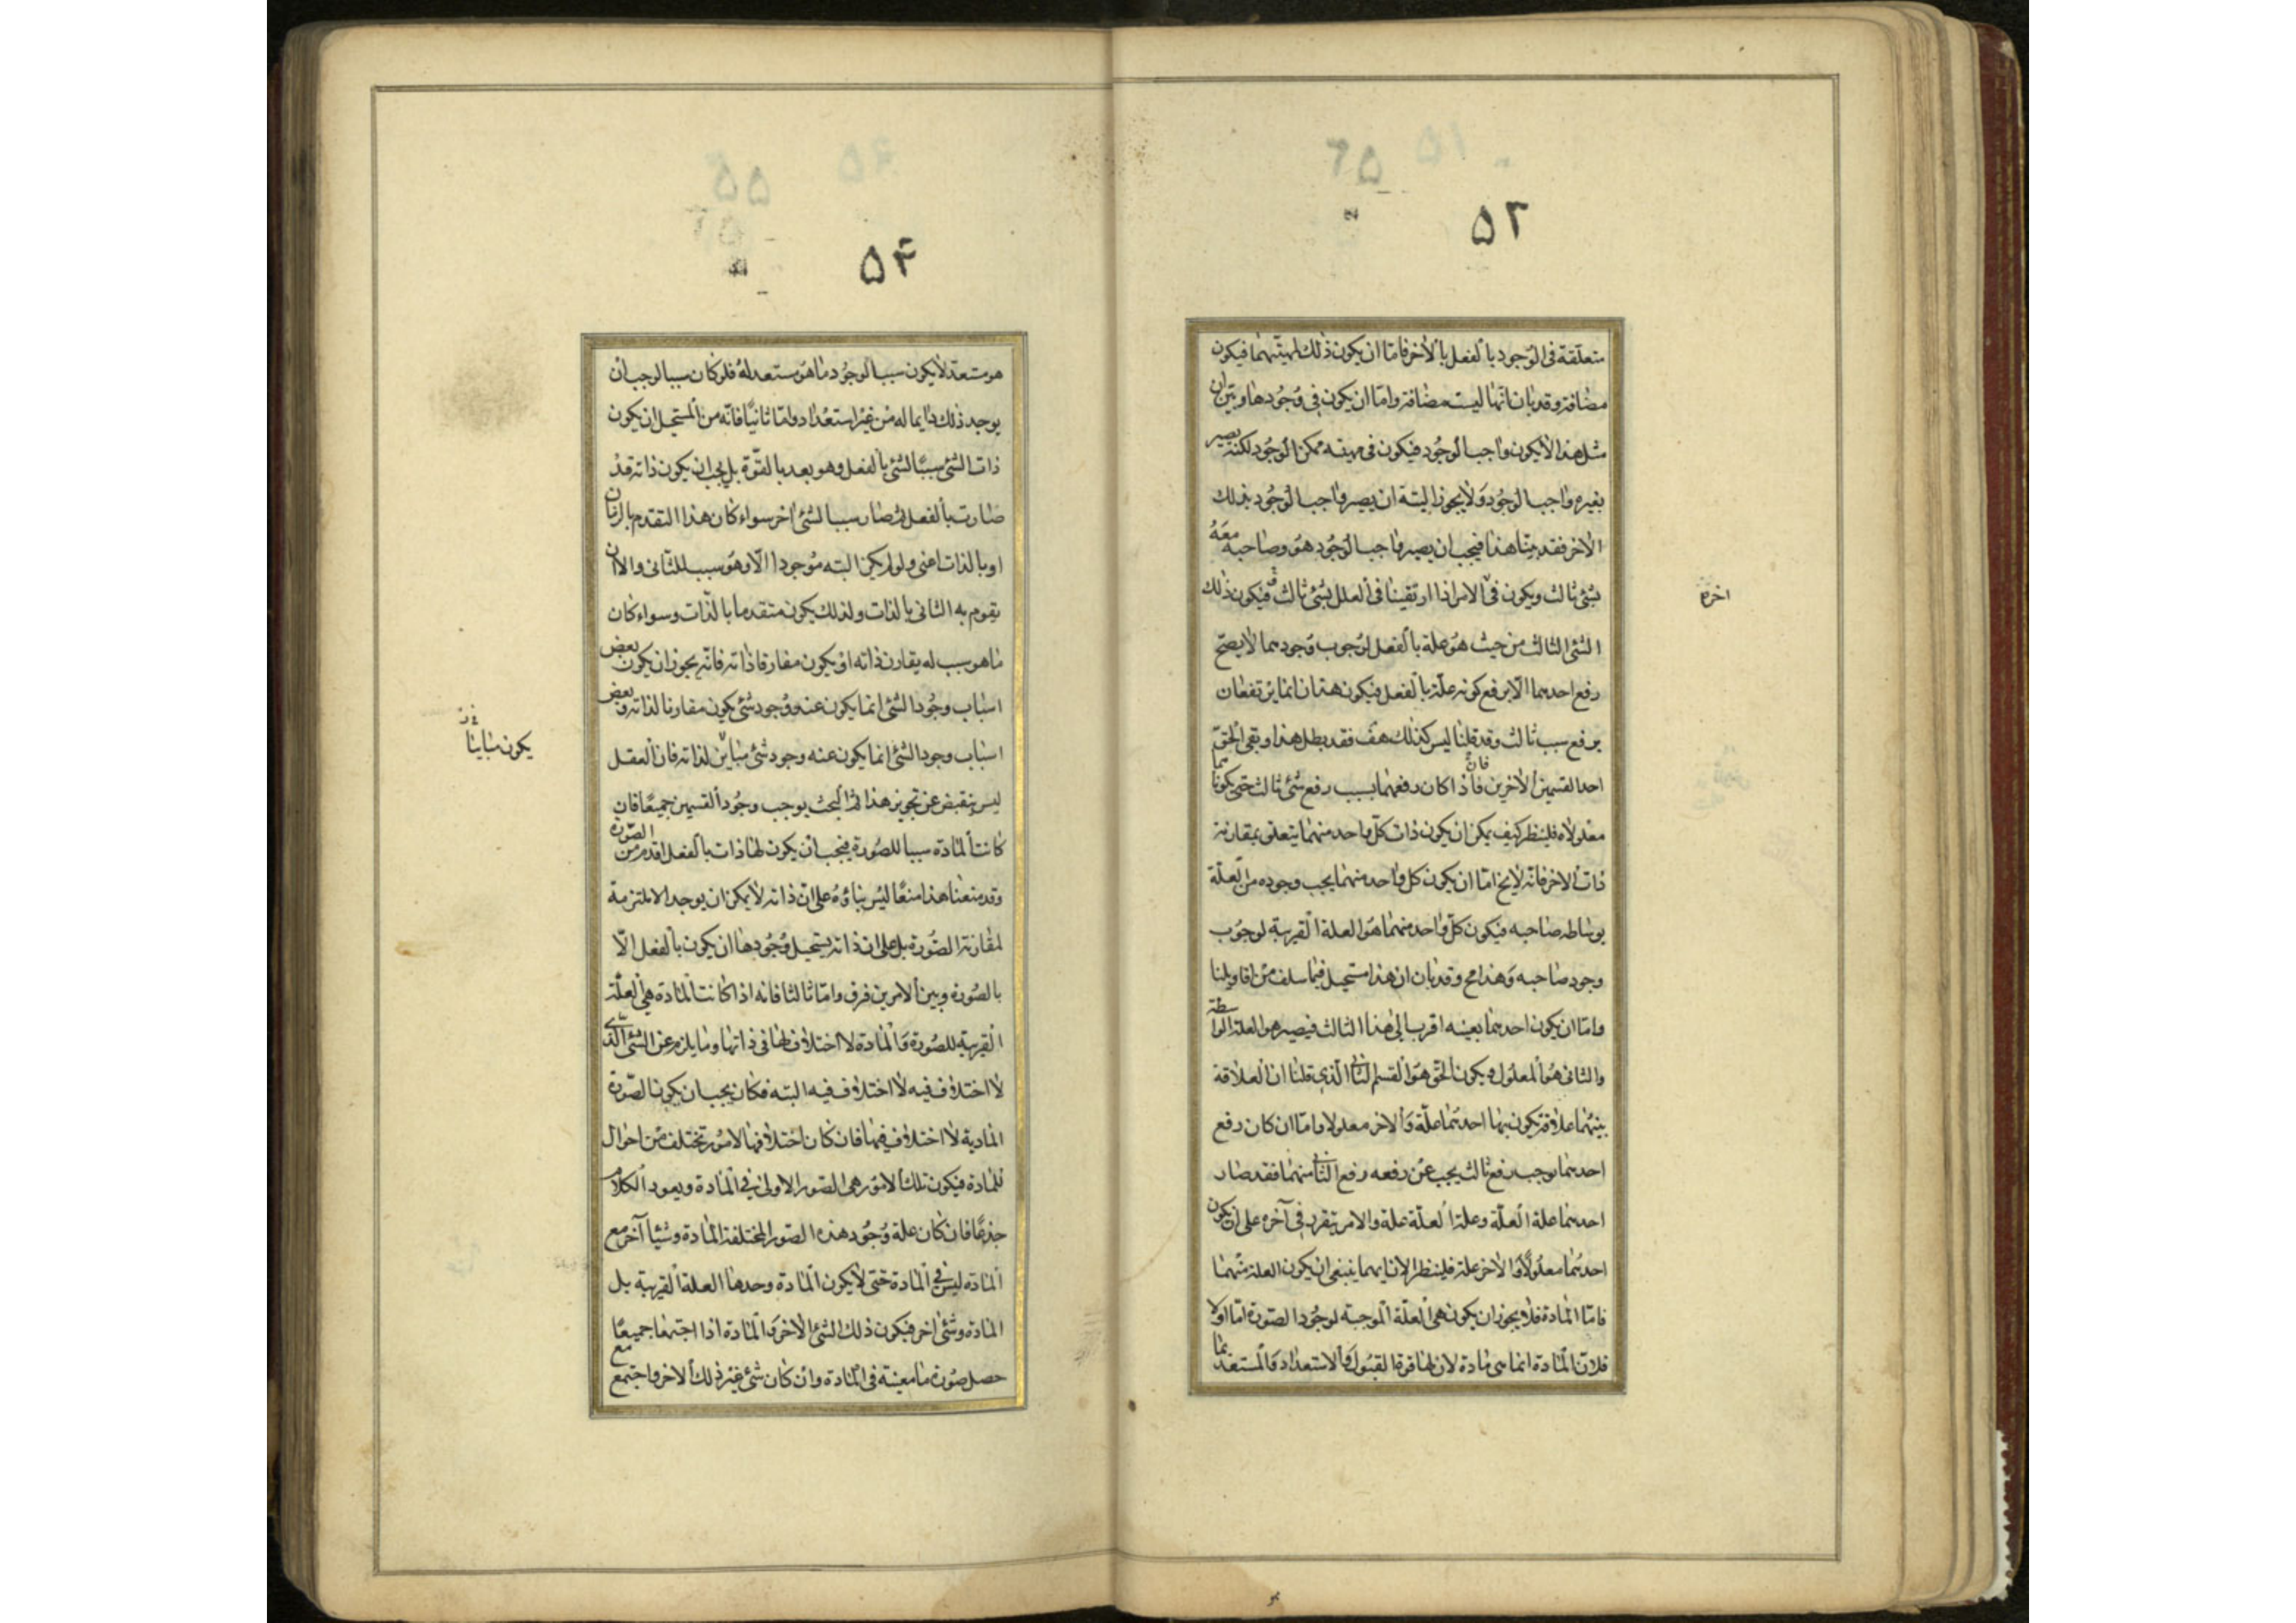 ۵۲
متعلّقة فى الوجود بالفعل بالاخر فامّا ان يكون ذلك لمهيّتهما فيكون
مضافة وقد بان انّها ليست مضافة وامّا ان يكون فى وجودها وبيّن ان
مثل هذا لايكون واجب الوجود فيكون فى مهيته ممكن الوجود لكنه يصير
بغيره واجب الوجود ولايجوز البتة ان يصير واجب الوجود بذلك
الاخر فقد بيّنا هذا فيجب ان يصير واجب الوجود هو وصاحبه معه
بشئ ثالث ويكون فى الامر اذا ارتقينا فى العلل بشئ ثالث فيكون ذلك
اخره
الشئ الثالث من حيث هو علة بالفعل لوجوب وجودهما لايصحّ
رفع احدهما الّا برفع كونه علّة بالفعل فيكون هذان انما يرتفعان
برفع سبب ثالث وقد قلنا ليس كذلك هف فقد بطل هذا وبقى الحقّ
احد القسمين الاخرين فان اذا كان رفعهما بسبب رفع شئ ثالث حتى يكونا
معلولاه فلينظر كيف يمكن ان يكون ذات كلّ واحد منهما يتعلق بمقارنة
ذات الاخر فانّه لايخ امّا ان يكون كل واحد منهما يجب وجوده من العلّة
بوساطة صاحبه فيكون كلّ واحد منهما هو العلة القريبة لوجوب
وجود صاحبه وهذا مح وقد بان ان هذا مستحيل فيما سلف من اقاويلنا
وامّا ان يكون احدهما بعينه اقرب الى هذا الثالث فيصير هو العلة الواسطة
والثانى هو المعلول ويكون الحق هو القسم الثانى الّذى قلنا ان العلاقة
بينهما علاقة يكون بها احدهما علّة والاخر معلولا وامّا ان كان رفع
احدهما يوجب رفع ثالث يجب عن رفعه رفع الثانى منهما فقد صار
احدهما علة العلّة وعلة العلّة علة والامر يتقرر فى آخره على ان يكون
احدهما معلولًا والاخر علة فلينظر الان ايهما ينبغى ان يكون العلة منهما
فامّا المادة فلايجوز ان يكون هى العلّة الموجبة لوجود الصورة امّا اولا
فلانّ المادة انما هى مادة لان لها قوة القبول والاستعداد والمستعد بما
۵۴
هو مستعدّ لايكون سببا لوجود ما هو مستعد له فلو كان سببا لوجب ان
يوجد ذلك دايما له من غير استعداد وامّا ثانيًا فانّه من المستحيل ان يكون
ذات الشئ سببًا لشئ بالفعل وهو بعد بالقوّة بل يجب ان يكون ذاته قد
صارت بالفعل ثم صار سببا لشئ اخر سواء كان هذا التقدم بالزمان
او بالذات اعنى ولو لم يكن البته موجودا الّا وهو سبب للثانى والا ان
يقوم به الثانى بالذات ولذلك يكون متقدما بالذات وسواء كان
ما هو سبب له يقارن ذاته او يكون مفارقا ذاته فانّه يجوز ان يكون بعض
اسباب وجود الشئ انما يكون عنه وجود شئ يكون مقارنا لذاته وبعض
يكون مباينا
اسباب وجود الشئ انما يكون عنه وجود شئ مباين لذاته فان العقل
ليس ينقبض عن تجويز هذا ثم البحث يوجب وجود القسمين جميعًا فان
كانت المادة سببا للصورة فيجب ان يكون لها ذات بالفعل اقدم من الصّورة
وقد منعنا هذا منعًا ليس بناؤه على ان ذاته لايمكن ان يوجد الا ملتزمة
لمقارنة الصورة بل على ان ذاته يستحيل وجودها ان يكون بالفعل الّا
بالصورة وبين الامرين فرق وامّا ثالثا فانه اذا كانت المادة هى العلّة
القريبة للصورة والمادة لا اختلاف لها فى ذاتها وما يلزم عن الشئ الّذى
لا اختلاف فيه لا اختلاف فيه البته فكان يجب ان يكون الصّورة
المادية لا اختلاف فيها فان كان اختلافها لامور تختلف من احوال
للمادة فيكون تلك الامور هى الصّور الاولى فى المادة ويعود الكلام
جذعًا فان كان علة وجود هذه الصور المختلفة المادة وشيئا آخر مع
المادة ليس فى المادة حتى لايكون المادة وحدها العلة القريبة بل
المادة وشئ اخر فيكون ذلك الشئ الاخر والمادة اذا اجتمعا جميعًا
حصل صورة ما معينة فى المادة وان كان شئ غير ذلك الاخر واجتمع مع